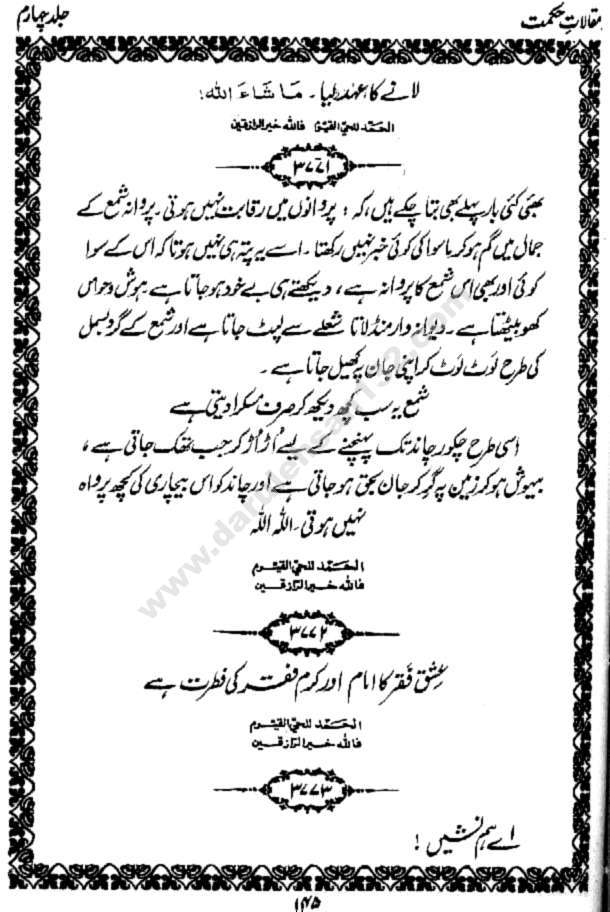 مقالاتِ حکمت
جلد چہارم
لانے کا عہد لیا۔ مَا شَاءَ اللہ!
الحَمد للحیّ القیّوم فاللہ خیر الرازقین
۳۷۷۱
بھئی کئی بار پہلے بھی بتا چکے ہیں، کہ : پروانوں میں رقابت نہیں ہوتی۔ پروانہ شمع کے
جمال میں گم ہو کر ماسوا کی کوئی خبر نہیں رکھتا۔ اسے یہ پتہ ہی نہیں ہوتا کہ اس کے سوا
کوئی اور بھی اس شمع کا پروانہ ہے، دیکھتے ہی بے خود ہو جاتا ہے ہوش و حواس
کھو بیٹھتا ہے۔ دیوانہ وار منڈلاتا شعلے سے لپٹ جاتا ہے اور شمع کے گرد بسمل
کی طرح لَوٹ لَوٹ کر اپنی جان پہ کھیل جاتا ہے۔
شمع یہ سب کچھ دیکھ کر صرف مسکرا دیتی ہے
اسی طرح چکور چاند تک پہنچنے کے لیے اُڑ اُڑ کر جب تھک جاتی ہے،
بیہوش ہو کر زمین پہ گر کر جان بحق ہو جاتی ہے اور چاند کو اس بیچاری کی کچھ پرواہ
نہیں ہوتی۔ اللہ اللہ
الحَمد للحیّ القیّوم
فاللہ خیر الرازقین
۳۷۷۲
عِشق فقر کا امام اور کرم فقر کی فطرت ہے
الحَمد للحیّ القیّوم
فاللہ خیر الرازقین
۳۷۷۳
اے ہم نشیں !
۱۴۵